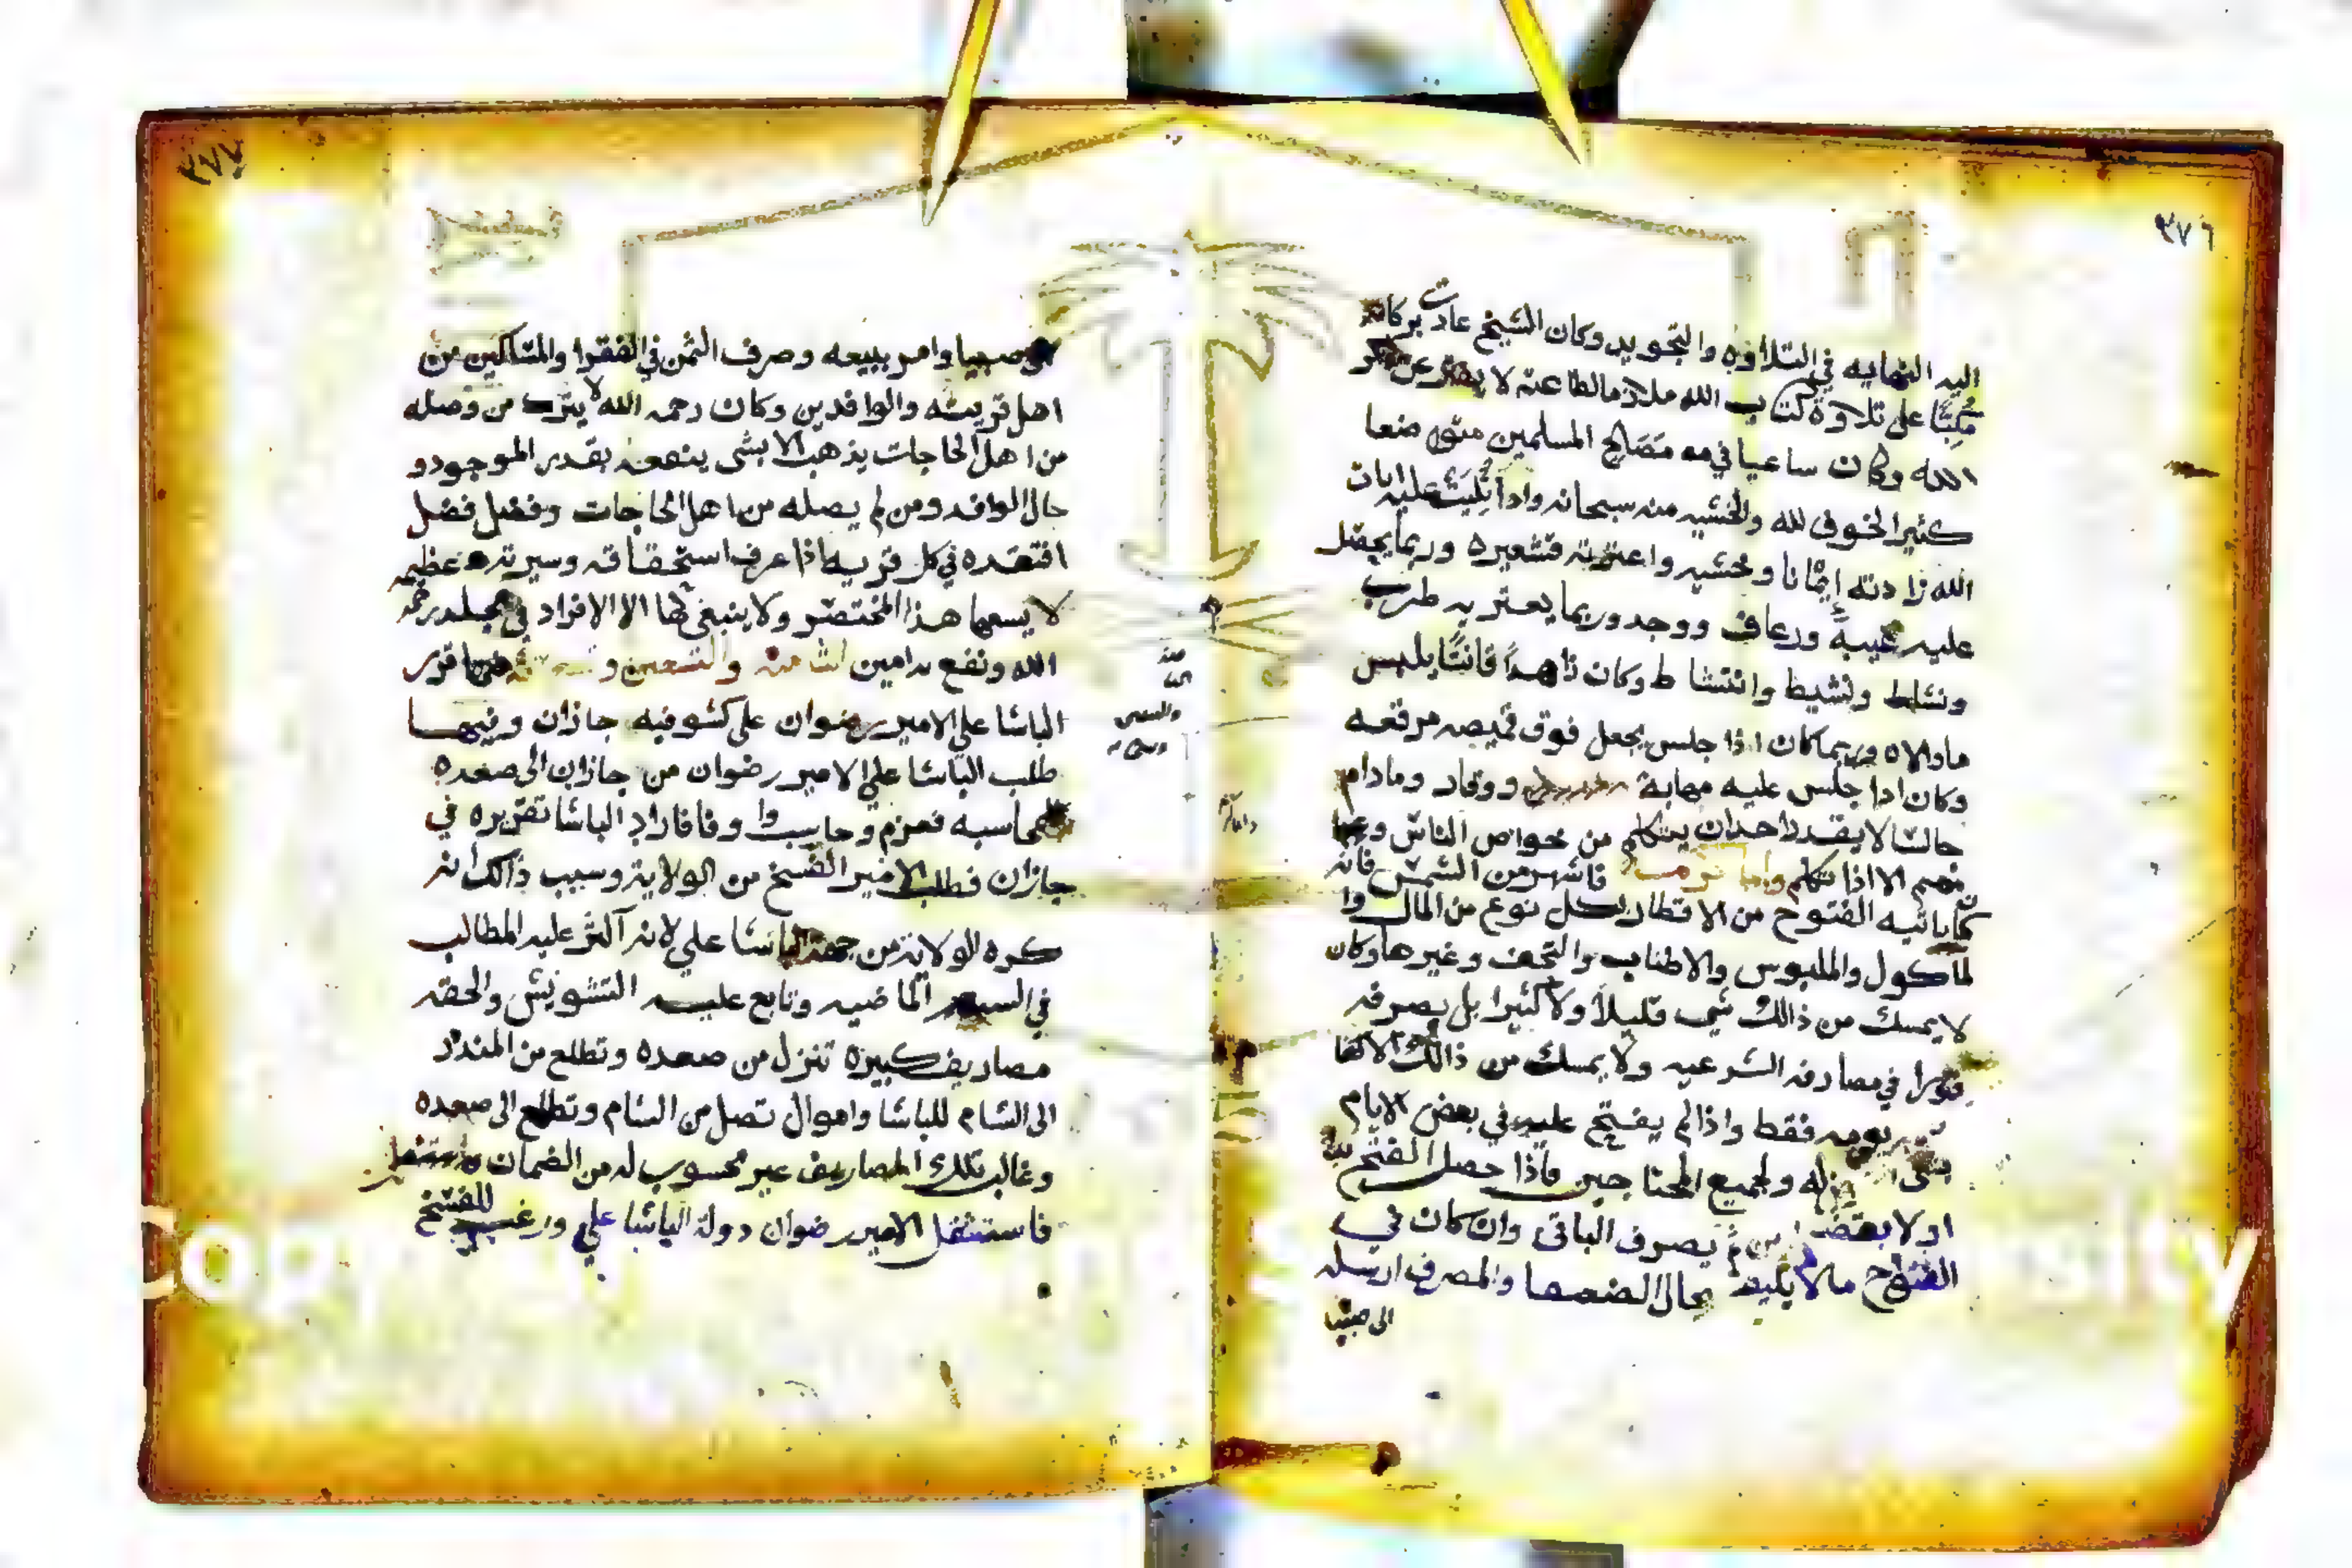 ٣٧٦
اليه النهايه في التلاوه والتجويد وكان الشيخ عادت بركاته
مكبًا على تلاوة كتاب الله ملازما لطاعته لا يفتر عن ذكر
الله وكان ساعيا في مصالح المسلمين
كثير الخوف لله والخشيه منه سبحانه واذا تُليَت عليه ايات
الله زادته إيمانا وخشيه واعترته قشعيره وربما يحصل
عليه غيبة ورعاف ووجد وربما يعتريه طرب
ونشاط وكان زاهداً قانتًا يلبس
ماوالاه وربما كان اذا جلس يجعل فوق قميصه مرقعه
وكان اذا جلس عليه مهابة ووقار ومادام
جالسا لا يقدر احد ان يتكلم من خواص الناس
الا اذا تكلم فاشهر من الشمس فانه
ياتيه الفتوح من الاقطار بكل نوع من المال وا
لمأكول والملبوس والتحف وغيرها وكان
لا يمسك من ذالك شي قليلاً ولا كثيرا بل يصرفه
فورا في مصارفه الشرعيه ولا يمسك من ذالك الا كفا
يومه فقط واذا لم يفتح عليه في بعض الايام
له ولجميع المحتاجين فاذا حصل الفتح
اولا ثم يصرف الباقى وان كان في
الفتوح ما لا يليق بحال الضعفا والمصرف ارسله
الى صبيا
٣٧٧
صبيا وامر ببيعه وصرف الثمن في الفقرا والمساكين من
اهل قريته والوافدين وكان رحمه الله لا يترك من وصله
من اهل الحاجات يذهب الا بشى ينفعه بقدر الموجود و
حال الوافد ومن لم يصله من اهل الحاجات
افتقده في كل قريه اذا عرف استحقاقه وسيرته عظيمه
لا يسعها هذا المختصر ولا ينبغي لها الا الافراد في مجلد رحمه
الله ونفع به امين الثامنه والتسعين و فيها قرر
الباشا علي الامير رضوان على كشوفيه جازان وفيها
طلب الباشا علي الامير رضوان من جازان الى صعده
للمحاسبه فعزم وحاسب وا وفا فاراد الباشا تقريره في
جازان فطلب الامير الفسخ من الولاية وسبب ذالك انه
كره الولاية من جهة الباشا علي لانه اكثر عليه المطالب
في السنه الماضيه وتابع عليه التشويش والحقه
مصاريف كبيرة تنزل من صعده وتطلع من البندر
الى الشام للباشا واموال تصل من الشام وتطلع الى صعده
وغالب تلك المصاريف غير محسوب له من الضمان
فاستثقل الامير رضوان دولة الباشا علي ورغب للفسخ